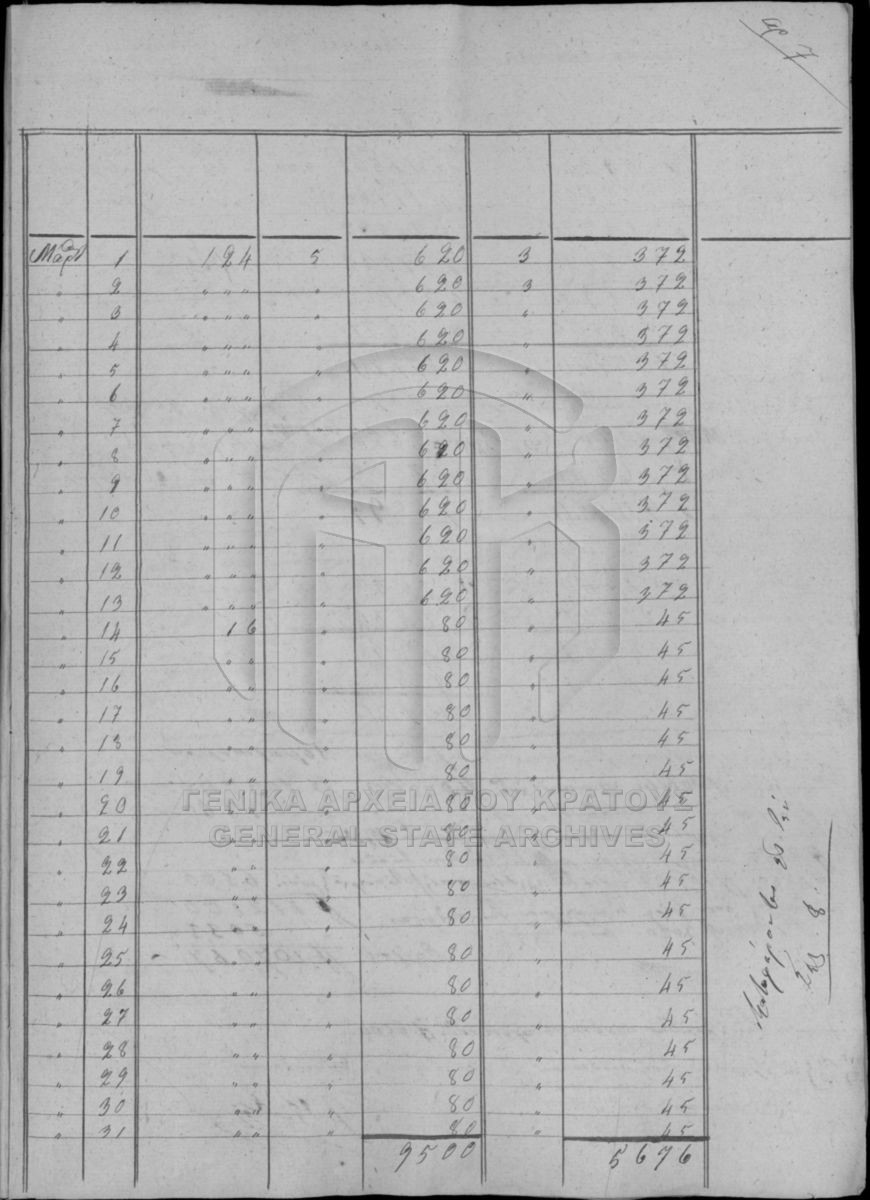 αρ 7
Μαρτ 1 124 5 620 3 372
" 2 " " " " 620 3 372
" 3 " " " " 620 " 372
" 4 " " " " 620 " 372
" 5 " " " " 620 " 372
" 6 " " " " 620 " 372
" 7 " " " " 620 " 372
" 8 " " " " 620 " 372
" 9 " " " " 620 " 372
" 10 " " " " 620 " 372
" 11 " " " " 620 " 372
" 12 " " " " 620 " 372
" 13 " " " " 620 " 372
" 14 16 " 80 " 45
" 15 " " " 80 " 45
" 16 " " " 80 " 45
" 17 " " " 80 " 45
" 18 " " " 80 " 45
" 19 " " " 80 " 45
" 20 " " " 80 " 45
" 21 " " " 80 " 45
" 22 " " " 80 " 45
" 23 " " " 80 " 45
" 24 " " " 80 " 45
" 25 " " " 80 " 45
" 26 " " " 80 " 45
" 27 " " " 80 " 45
" 28 " " " 80 " 45
" 29 " " " 80 " 45
" 30 " " " 80 " 45
" 31 " " " 80 " 45
9500 5676
ΓΕΝΙΚΑ ΑΡΧΕΙΑ ΤΟΥ ΚΡΑΤΟΥΣ
GENERAL STATE ARCHIVES